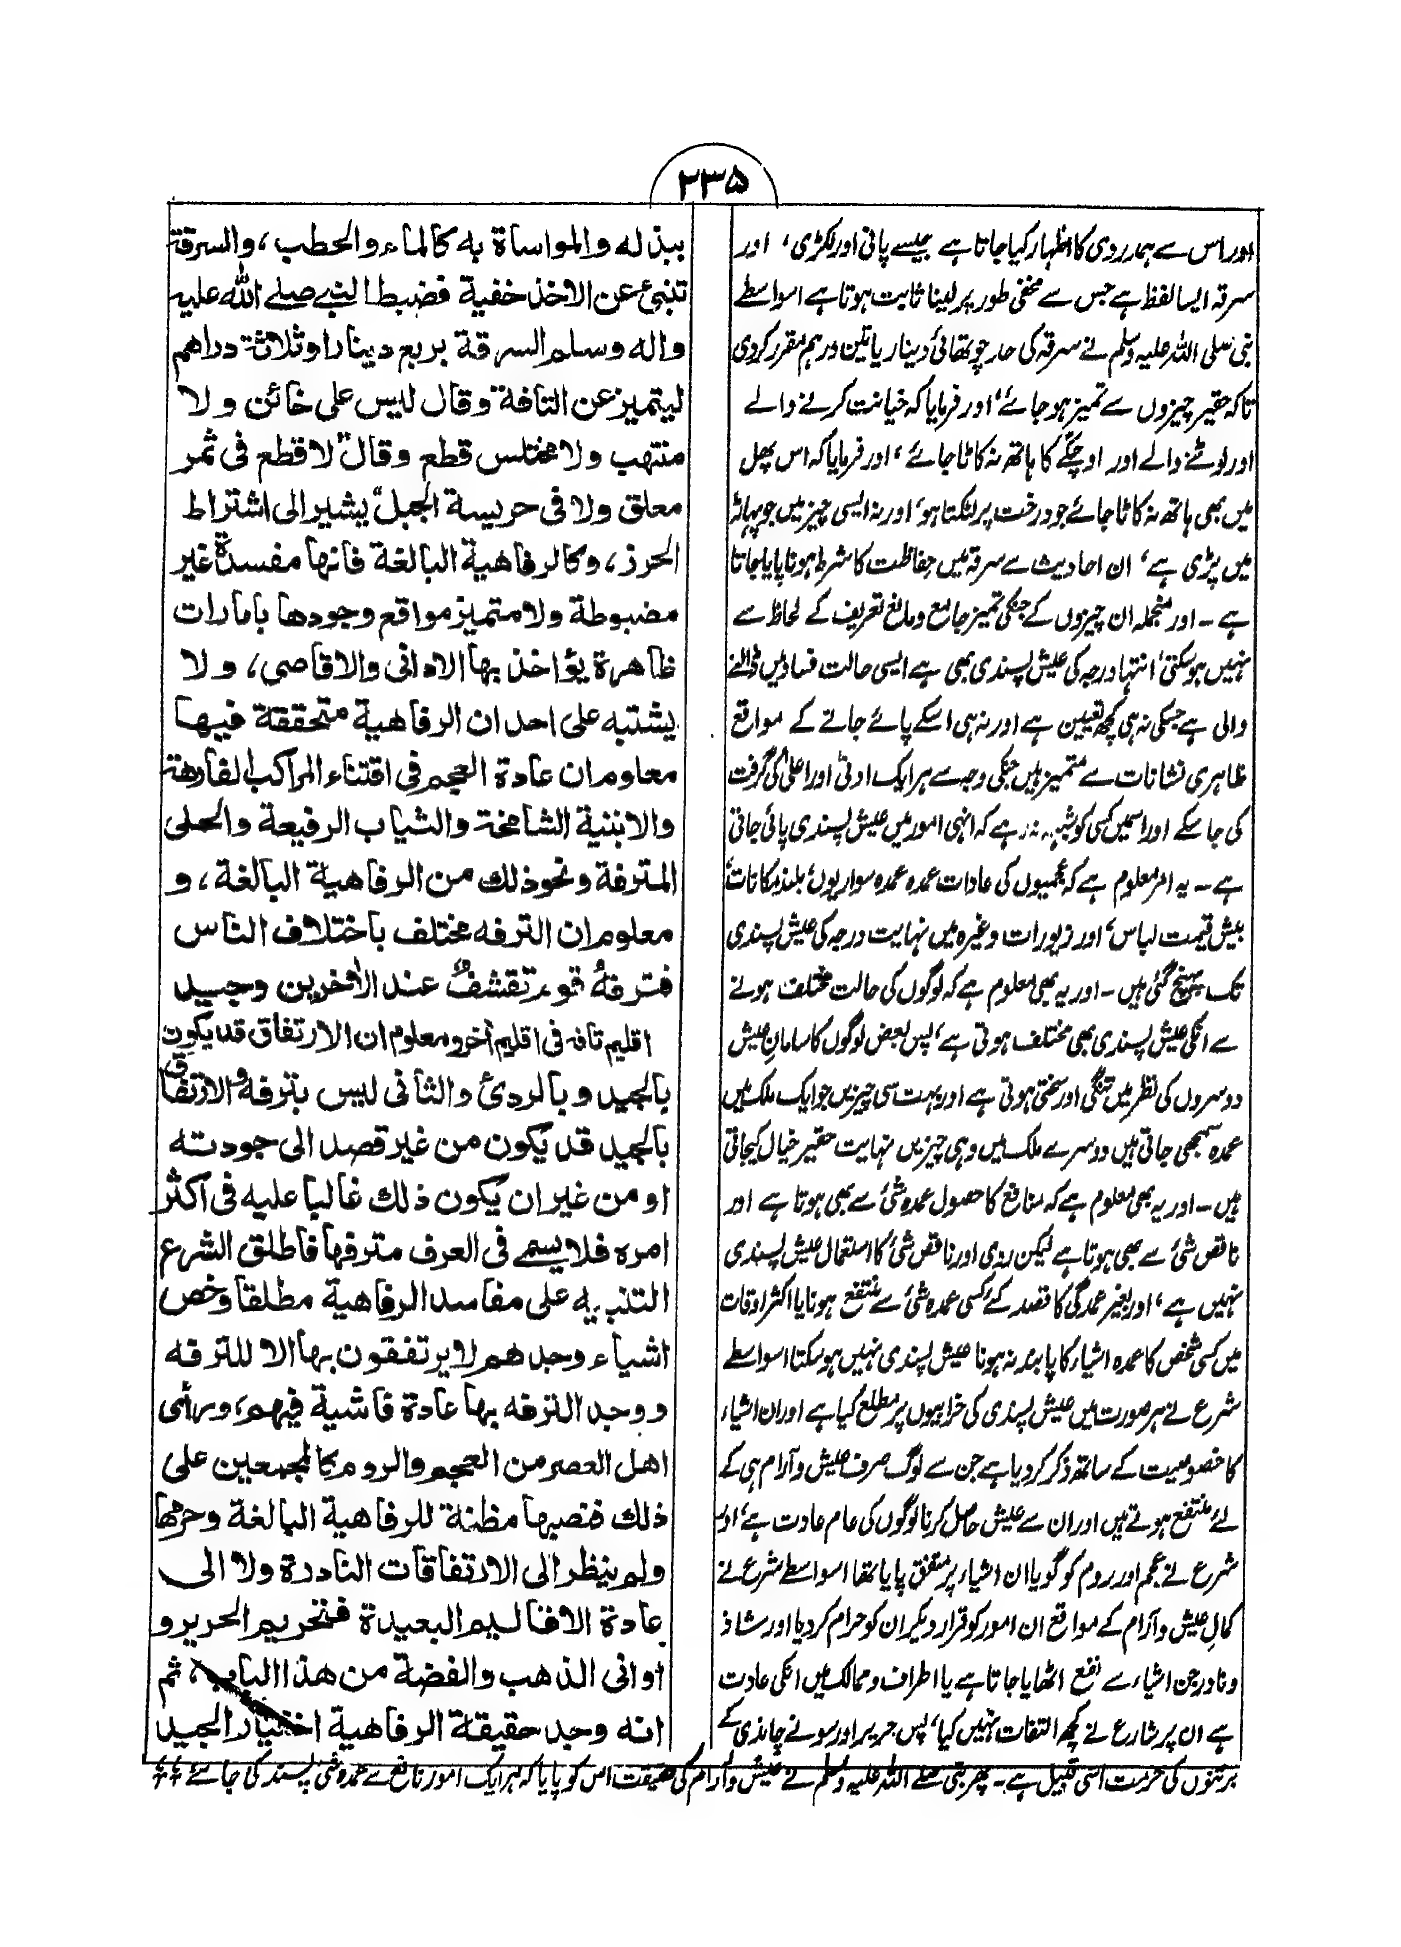 ۲۳۵
اور اس سے ہمدردی کا اظہار کیا جاتا ہے جیسے پانی اور لکڑی، اور
سرقہ ایسا لفظ ہے جس سے مخفی طور پر لینا ثابت ہوتا ہے اسواسطے
نبی صلی اللہ علیہ وسلم نے سرقہ کی حد چوتھائی دینار یا تین درہم مقرر کردی
تاکہ حقیر چیزوں سے تمیز ہو جائے، اور فرمایا کہ خیانت کرنے والے
اور لوٹنے والے اور اوچکے کا ہاتھ نہ کاٹا جائے، اور فرمایا کہ اس پھل
میں بھی ہاتھ نہ کاٹا جائے جو درخت پر لٹکتا ہو، اور نہ ایسی چیز میں جو پہاڑ
میں پڑی ہے، ان احادیث سے سرقہ میں حفاظت کا شرط ہونا پایا جاتا
ہے ۔ اور منجملہ ان چیزوں کے جنکی تمیز جامع و مانع تعریف کے لحاظ سے
نہیں ہو سکتی، انتہا درجہ کی عیش پسندی بھی ہے ایسی حالت فساد میں ڈالنے
والی ہے جسکی نہ ہی کچھ تعیین ہے اور نہ ہی اسکے پائے جانے کے مواقع
ظاہری نشانات سے متمیز ہیں جنکی وجہ سے ہر ایک ادنیٰ اور اعلیٰ کی گرفت
کی جا سکے اور اسمیں کسی کو شبہہ نہ رہے کہ انہی امور میں عیش پسندی پائی جاتی
ہے ۔ یہ امر معلوم ہے کہ عجمیوں کی عادات عمدہ عمدہ سواریوں، بلند مکانات،
بیش قیمت لباس، اور زیورات وغیرہ میں نہایت درجہ کی عیش پسندی
تک پہنچ گئی ہیں ۔ اور یہ بھی معلوم ہے کہ لوگوں کی حالت مختلف ہونے
سے انکی عیش پسندی بھی مختلف ہوتی ہے، پس بعض لوگوں کا سامانِ عیش
دوسروں کی نظر میں تنگی اور سختی ہوتی ہے اور بہت سی چیزیں جو ایک ملک میں
عمدہ سمجھی جاتی ہیں دوسرے ملک میں وہی چیزیں نہایت حقیر خیال کیجاتی
ہیں ۔ اور یہ بھی معلوم ہے کہ منافع کا حصول عمدہ شئ سے بھی ہوتا ہے اور
ناقص شئ سے بھی ہوتا ہے لیکن ردی اور ناقص شئ کا استعمال عیش پسندی
نہیں ہے، اور بغیر عمدگی کا قصد کئے کسی عمدہ شئ سے منتفع ہونا یا اکثر اوقات
میں کسی شخص کا عمدہ اشیاء کا پابند نہ ہونا عیش پسندی نہیں ہو سکتا اسواسطے
شرع نے ہر صورت میں عیش پسندی کی خرابیوں پر مطلع کیا ہے اور ان اشیاء
کا خصوصیت کے ساتھ ذکر کر دیا ہے جن سے لوگ صرف عیش و آرام ہی کے
لئے منتفع ہوتے ہیں اور ان سے عیش حاصل کرنا لوگوں کی عام عادت ہے، اور
شرع نے عجم اور روم کو گویا ان اشیاء پر متفق پایا تھا اسواسطے شرع نے
کمالِ عیش و آرام کے مواقع ان امور کو قرار دیکر ان کو حرام کردیا اور شاذ
و نادر جن اشیاء سے نفع اٹھایا جاتا ہے یا اطراف و ممالک میں انکی عادت
ہے ان پر شارع نے کچھ التفات نہیں کیا، پس حریر اور سونے چاندی کے
ببذله والمواساة به كالماء والحطب، والسرقة
تنبئ عن الاخذ خفية فضبط النبي صلے الله عليه
واله وسلم السرقة بربع دينار او ثلاثة دراهم
ليتميز عن التافة وقال ليس على خائن ولا
منتهب ولا مختلس قطع وقال "لا قطع فى ثمر
معلق ولا فى حريسة الجبل" يشير الى اشتراط
الحرز، وكالرفاهية البالغة فانها مفسدة غير
مضبوطة ولا متميز مواقع وجودها بامارات
ظاهرة يؤاخذ بها الادانى والاقاصى، ولا
يشتبه على احد ان الرفاهية متحققة فيها
معلوم ان عادة العجم فى اقتناء المراكب الفارهة
والابنية الشامخة والثياب الرفيعة والحلى
المترفة ونحو ذلك من الرفاهية البالغة، و
معلوم ان الترفه مختلف باختلاف الناس
فترفهُ قوم تقشفٌ عند الاٰخرين وجيد
اقليم تافه فى اقليم اٰخر ومعلوم ان الارتفاق قد يكون
بالجيد وبالردئ والثانى ليس بترفه والارتفاق
بالجيد قد يكون من غير قصد الى جودته
او من غير ان يكون ذلك غالبا عليه فى اكثر
امره فلا يسمے فى العرف مترفها فاطلق الشرع
التنبيه على مفاسد الرفاهية مطلقا وخص
اشياء وجدهم لا يرتفقون بها الا للترفه
ووجد الترفه بها عادة فاشية فيهم، ورأى
اهل العصر من العجم والروم كالمجمعين على
ذلك فنصبها مظنة للرفاهية البالغة وحرمها
ولم ينظر الى الارتفاقات النادرة ولا الى
عادة الاقاليم البعيدة فتحريم الحرير و
اوانى الذهب والفضة من هذا الباب، ثم
انه وجد حقيقة الرفاهية اختيار الجيد
برتنوں کی حرمت اسی قبیل سے ہے ۔ پھر نبی صلے اللہ علیہ وسلم نے عیش و آرام کی حقیقت اس کو پایا کہ ہر ایک امور نافع سے عمدہ شئ پسند کی جائے